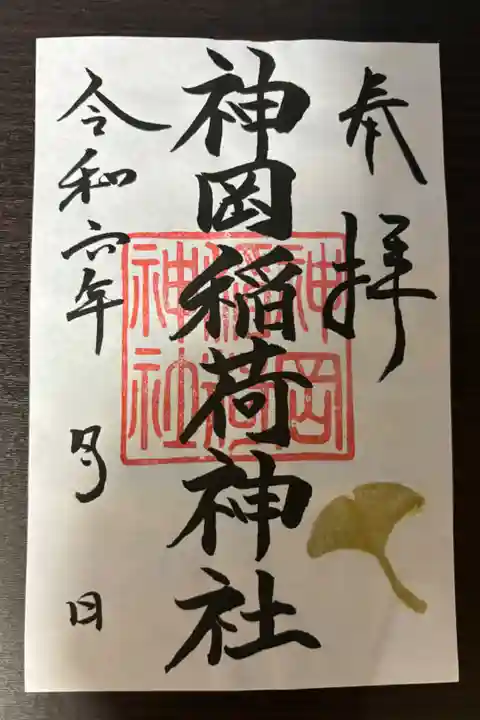 奉拝
神岡稲荷神社
神岡
稲荷
神社
令和六年 月 日